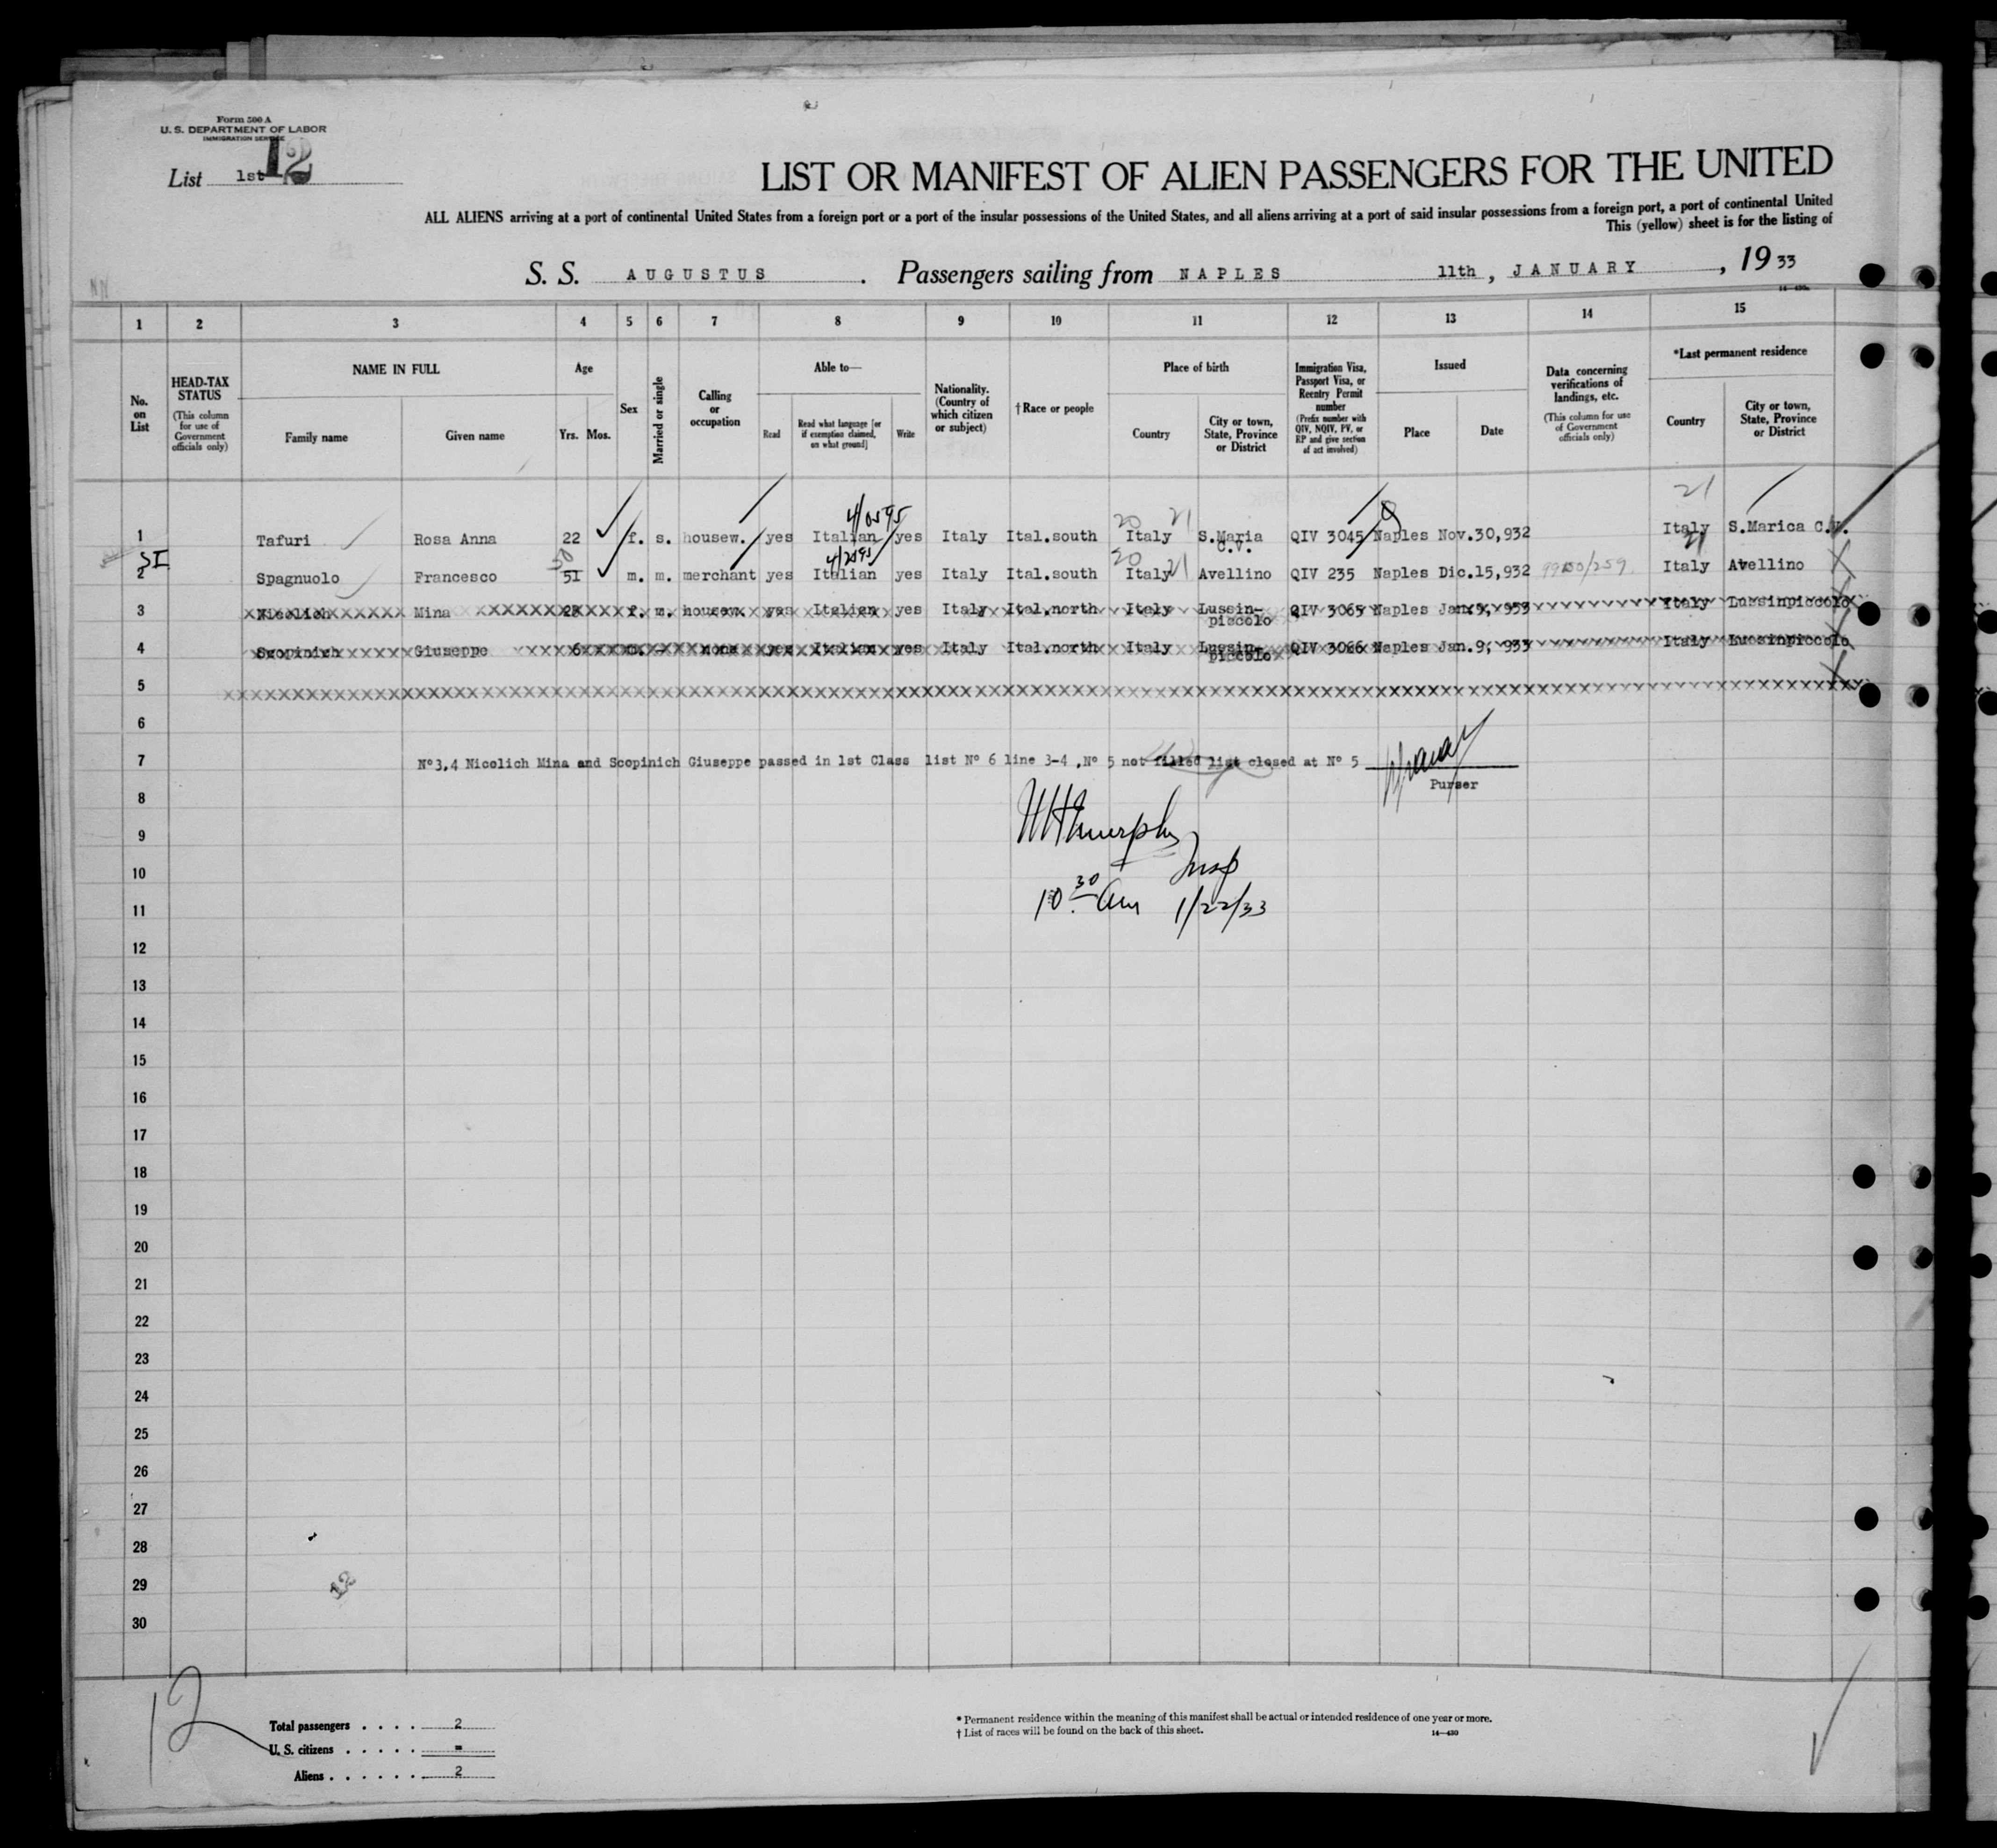 Form 500 A
U. S. DEPARTMENT OF LABOR
IMMIGRATION SERVICE
List 1st 12
LIST OR MANIFEST OF ALIEN PASSENGERS FOR THE UNITED
ALL ALIENS arriving at a port of continental United States from a foreign port or a port of the insular possessions of the United States, and all aliens arriving at a port of said insular possessions from a foreign port, a port of continental United
This (yellow) sheet is for the listing of
S. S. AUGUSTUS . Passengers sailing from NAPLES 11th , JANUARY , 19 33
1 2 3 4 5 6 7 8 9 10 11 12 13 14 15
No. on List
HEAD-TAX STATUS (This column for use of Government officials only)
NAME IN FULL
Family name Given name
Age
Yrs. Mos.
Sex
Married or single
Calling or occupation
Able to—
Read
Read what language [or if exemption claimed, on what ground]
Write
Nationality. (Country of which citizen or subject)
† Race or people
Place of birth
Country
City or town, State, Province or District
Immigration Visa, Passport Visa, or Reentry Permit number (Prefix number with QIV, NQIV, PV, or RP and give section of act involved)
Issued
Place Date
Data concerning verifications of landings, etc. (This column for use of Government officials only)
*Last permanent residence
Country
City or town, State, Province or District
1 Tafuri Rosa Anna 22 f. s. housew. yes Italian yes Italy Ital.south Italy S.Maria C.V. QIV 3045 Naples Nov.30,932 Italy S.Marica C.V.
2 Spagnuolo Francesco 5I m. m. merchant yes Italian yes Italy Ital.south Italy Avellino QIV 235 Naples Dic.15,932 Italy Avellino
3 Nicolich Mina f. m. housew. yes Italian yes Italy Ital.north Italy Lussin-piccolo QIV 3065 Naples Jan.9, 933 Italy Lussinpiccolo
4 Scopinich Giuseppe 6 m. none yes Italian yes Italy Ital.north Italy Lussin-piccolo QIV 3066 Naples Jan.9, 933 Italy Lussinpiccolo
5
6
7 Nº3,4 Nicolich Mina and Scopinich Giuseppe passed in 1st Class list Nº 6 line 3-4 ,Nº 5 not filled list closed at Nº 5
Purser
8
9
10 Insp
11 10 30 Am 1/22/33
12
13
14
15
16
17
18
19
20
21
22
23
24
25
26
27
28
29
30
12
Total passengers . . . . 2
U. S. citizens . . . . . =
Aliens . . . . . . 2
* Permanent residence within the meaning of this manifest shall be actual or intended residence of one year or more.
† List of races will be found on the back of this sheet.
14—430